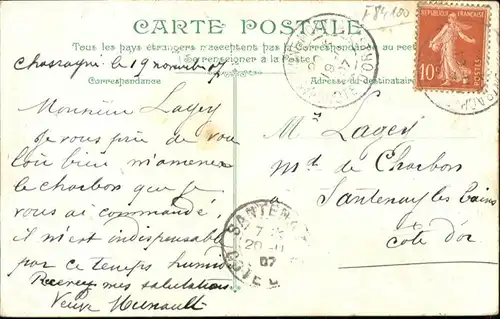 F84100
CARTE POSTALE
Tous les pays étrangers n'acceptent pas la Correspondance au recto
(Se renseigner à la Poste)
Correspondance
Adresse du destinataire
REPUBLIQUE FRANÇAISE
10c
POSTES
chassagne le 19 novembre 07
Monsieur Lagey
Je vous prie de vou
loir bien m'amener
le charbon que je
vous ai commandé,
il m'est indispensable
par ce temps humide
Recevez mes salutations
Veuve Hunault
M. Lagey
md de Charbon
à Santenay les Bains
côte d'or
SANTENAY
20 - 11
07
CÔTE D'OR